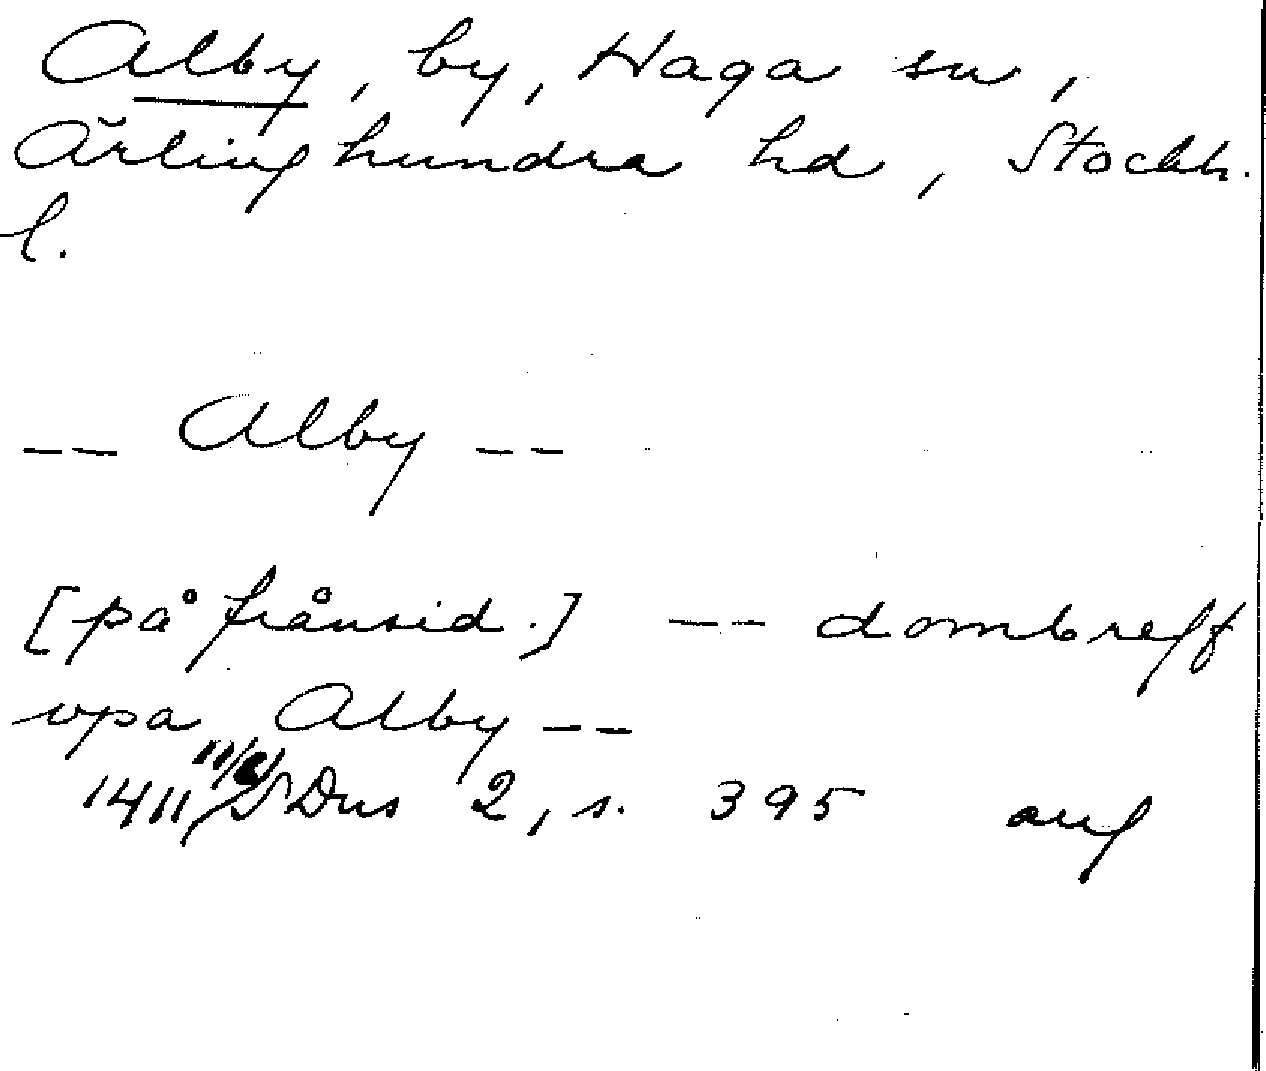 Alby, by, Haga sn,
Ärlinghundra hd, Stockh.
l.
-- Alby --
[på frånsid.] -- dombreff
vpa Alby --
1411 11/6 SDns 2, s. 395 avs